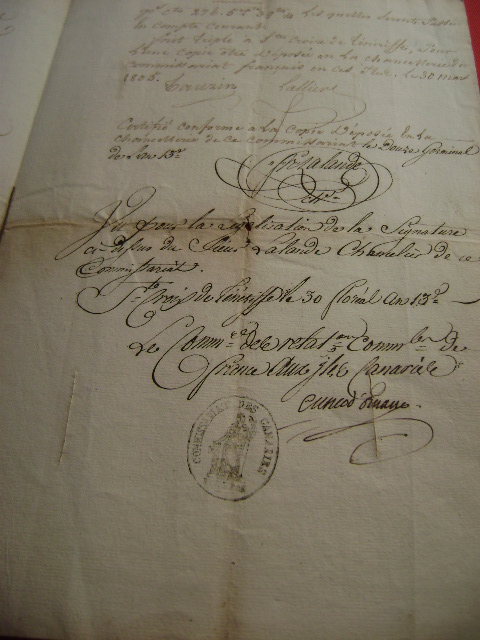 le compte courant
fait triple à Ste Croix de Ténériffe, dont
l'une copie sera déposée en la chancellerie du
commissariat français en cet Isle, le 30 mars
1805.
Certifié conforme à la Copie déposée en la
chancellerie de ce commissariat le Douze Germinal
de l'an 13e
Lalande
Chr
Vu pour la légalisation de la Signature
ci-dessus du Sieur Lalande Chancelier de ce
Commissariat.
Ste Croix de Ténériffe le 30 floréal an 13e
Le Commre des relatons Commles de
france aux isles Canaries
cuneo d'ornano.
COMMISSARIAT DES CANARIES